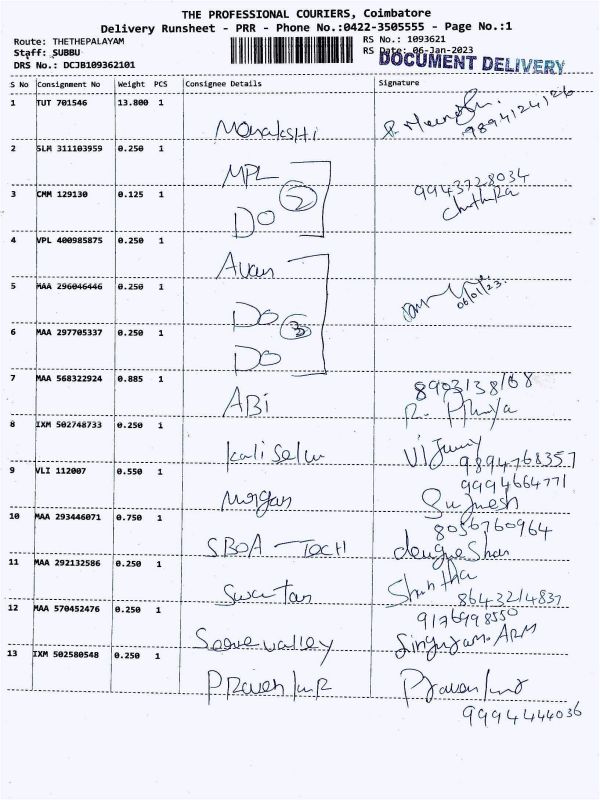 THE PROFESSIONAL COURIERS, Coimbatore
Delivery Runsheet - PRR - Phone No.:0422-3505555 - Page No.:1
Route: THETHEPALAYAM
RS No.: 1093621
Staff: SUBBU
RS Date: 06-Jan-2023
DRS No.: DCJB109362101
DOCUMENT DELIVERY
S No Consignment No Weight PCS Consignee Details Signature
1 TUT 701546 13.800 1
9894124126
2 SLM 311103959 0.250 1
MPL
9943728034
3 CMM 129130 0.125 1
2
DO
4 VPL 400985875 0.250 1
5 MAA 296046446 0.250 1
06/01/23.
DO
3
6 MAA 297705337 0.250 1
DO
7 MAA 568322924 0.885 1
ABi
8903138168
R. Priya
8 IXM 502748733 0.250 1
9894768357
9 VLI 112007 0.550 1
9994664771
10 MAA 293446071 0.750 1
SBOA - TECH
8056760964
11 MAA 292132586 0.250 1
Shantha
8643214837
12 MAA 570452476 0.250 1
9176998550
valley
13 IXM 502580548 0.250 1
9994444036